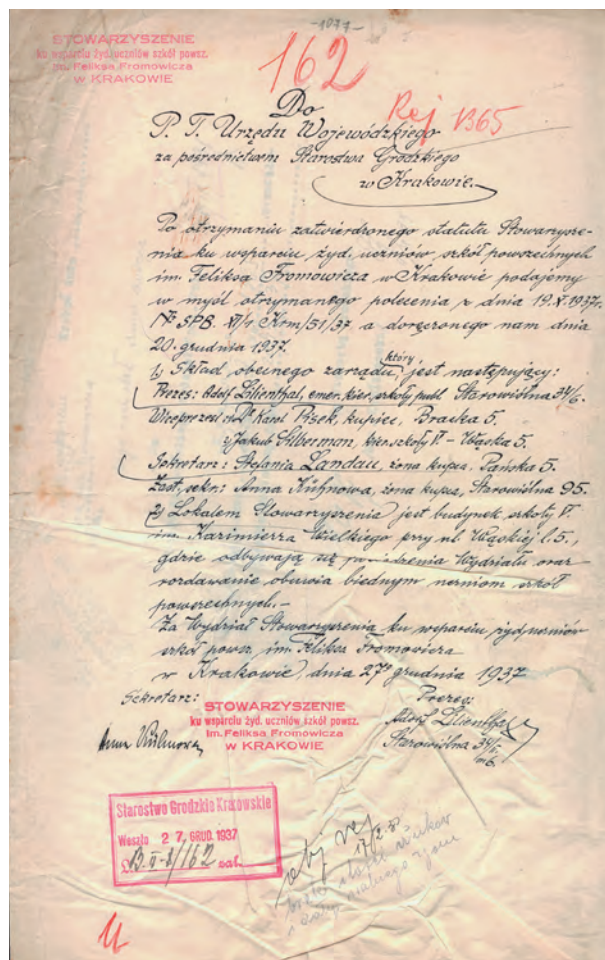 -1077-
STOWARZYSZENIE
ku wsparciu żyd. uczniów szkół powsz.
im. Feliksa Fromowicza
w KRAKOWIE
162
Rej 1365
Do
P. T. Urzędu Wojewódzkiego
za pośrednictwem Starostwa Grodzkiego
w Krakowie.
Po otrzymaniu zatwierdzonego statutu Stowarzysze-
nia ku wsparciu żyd. uczniów szkół powszechnych
im. Feliksa Fromowicza w Krakowie podajemy
w myśl otrzymanego polecenia z dnia 19.X.1937r.
No SPB. XI/1 Krm/51/37 a doręczonego nam dnia
20. grudnia 1937.
1.) Skład obecnego zarządu, który jest następujący:
Prezes: Adolf Lilienthal, emer. kier. szkoły publ. Starowiślna 34/6.
Wiceprezesi: Dr Karol Pisek, kupiec, Bracka 5.
2) Jakub Silberman, kier. szkoły VI - Wąska 5.
Sekretarz: Stefania Landau, żona kupca, Pańska 5.
Zast. sekr.: Anna Kühnowa, żona kupca, Starowiślna 95.
2) Lokalem Stowarzyszenia jest budynek szkoły VI.
im. Kazimierza Wielkiego przy ul. Wąskiej l. 5.,
gdzie odbywają się posiedzenia Wydziału oraz
rozdawanie obuwia biednym uczniom szkół
powszechnych.-
Za Wydział Stowarzyszenia ku wsparciu żyd. uczniów
szkół powsz. im. Feliksa Fromowicza
w Krakowie, dnia 27go grudnia 1937
Sekretarz:
Prezes:
STOWARZYSZENIE
ku wsparciu żyd. uczniów szkół powsz.
im. Feliksa Fromowicza
w KRAKOWIE
Anna Kühnowa
Adolf Lilienthal
Starowiślna 34/6
Starostwo Grodzkie Krakowskie
Weszło 27. GRUD. 1937
L. B. II-8/162 zał.
17/2